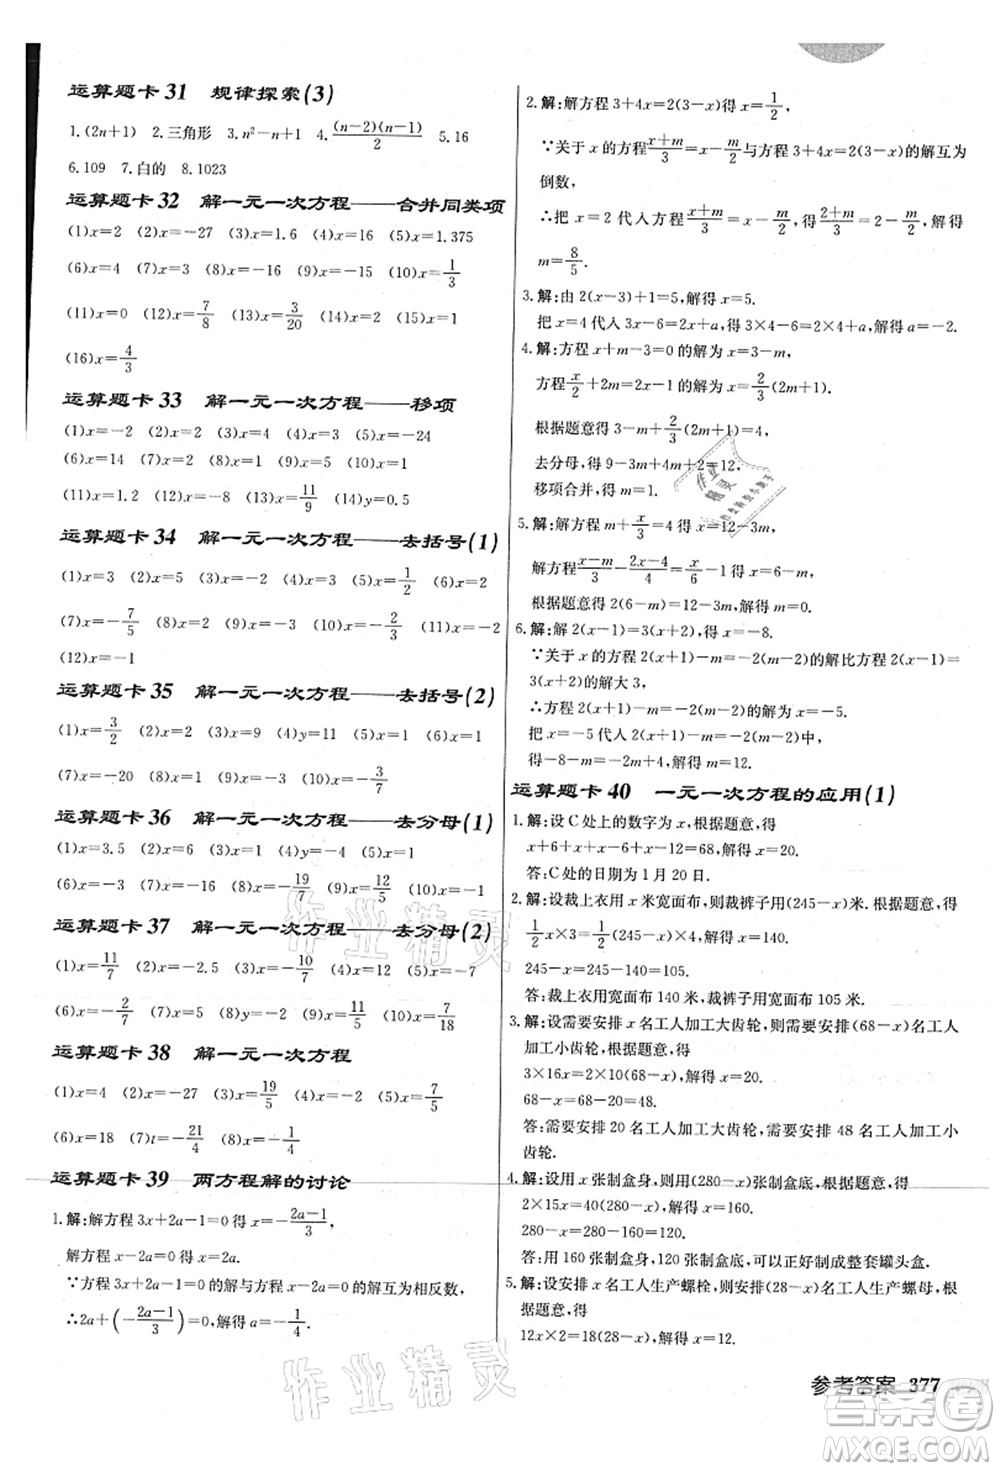 运算题卡 31 规律探索(3)
1.(2n+1) 2.三角形 3.n²-n+1 4.(n-2)(n-1)/2 5.16
6.109 7.白的 8.1023
运算题卡 32 解一元一次方程——合并同类项
(1)x=2 (2)x=-27 (3)x=1.6 (4)x=16 (5)x=1.375
(6)x=4 (7)x=1 (8)x=-16 (9)x=-15 (10)x=1/3
(11)x=0 (12)x=7/8 (13)x=3/20 (14)x=11 (15)x=4
(16)x=4/3
运算题卡 33 解一元一次方程——移项
(1)x=-2 (2)x=4 (3)x=4 (4)x=3 (5)x=-24
(6)x=2 (7)x=-1 (8)x=1 (9)x=1 (10)x=1
(11)x=1.2 (12)x=7 (13)x=11/9 (14)y=0.5
运算题卡 34 解一元一次方程——去括号(1)
(1)x=3 (2)x=5 (3)x=-2 (4)x=0 (5)x=1/2 (6)x=2
(7)x=-7/5 (8)x=0 (9)x=-3 (10)x=-2/3 (11)x=-2
(12)x=-1
运算题卡 35 解一元一次方程——去括号(2)
(1)x=3/2 (2)x=5 (3)x=9 (4)x=11 (5)x=-1 (6)x=2
(7)x=-20 (8)x=3 (9)x=0 (10)x=-3/7
运算题卡 36 解一元一次方程——去分母(1)
(1)x=3.5 (2)x=6 (3)x=4 (4)x=2 (5)x=4
(6)x=-3 (7)x=-2 (8)x=-19/7 (9)x=12/5 (10)x=-1
运算题卡 37 解一元一次方程——去分母(2)
(1)x=11/7 (2)x=-2.5 (3)x=10/7 (4)x=1 (5)x=-3
(6)x=-2/7 (7)x=4 (8)x=16 (9)x=11/5 (10)x=7/18
运算题卡 38 解一元一次方程
(1)x=4 (2)x=-27 (3)x=19/5 (4)x=3 (5)x=-1
(6)x=18 (7)t=-21/4 (8)x=-1/4
运算题卡 39 两方程解的讨论
1.解:解方程3x+2a-1=0得x=-(2a-1)/3,
解方程x-2a=0得x=2a.
∵方程3x+2a-1=0的解与方程x-2a=0的解互为相反数,
∴2a+(-(2a-1)/3)=0,解得a=-1/4.
2.解:解方程3+4x=2(3-x)得x=1/2,
∵关于x的方程(x+m)/3=x-m/2与方程3+4x=2(3-x)的解互为
倒数,
∴把x=2代入方程(x+m)/3=x-m/2,得(2+m)/3=2-m/2,解得
m=8/5.
3.解:由2(x-3)+1=5,解得x=5.
把x=4代入3x-6=2x+a,得3×4-6=2×4+a,解得a=-2.
4.解:方程x+m-3=0的解为x=3-m,
方程x/2+2m=x-1的解为x=2/3(2m+1),
根据题意得3-m+2/3(2m+1)=4,
去分母,得9-3m+4m+2=12,
移项合并,得m=1.
5.解:解方程m+x/3=4得x=12-3m,
解方程(x-m)/3-(2x-4)/4=x/6-1得x=6-m,
根据题意得2(6-m)=12-3m,解得m=0.
6.解:解2(x-1)=3(x+2),得x=-8.
∵关于x的方程2(x+1)-m=-2(m-2)的解比方程2(x-1)=
3(x+2)的解大3,
∴方程2(x+1)-m=-2(m-2)的解为x=-5.
把x=-5代入2(x+1)-m=-2(m-2),
得-10+2-m=-2m+4,解得m=12.
运算题卡 40 一元一次方程的应用(1)
1.解:设C处上的数字为x,根据题意,得
x+6+x+x-6+x-1+x=68,解得x=20.
答:C处的日期为1月20日.
2.解:设裁上衣用x米宽面布,则裁裤子用(245-x)米.根据题意,得
1/2x×3=1/2(245-x)×4,解得x=140.
245-x=245-140=105.
答:裁上衣用宽面布140米,裁裤子用宽面布105米.
3.解:设需要安排x名工人加工大齿轮,则需要安排(68-x)名工人
加工小齿轮,根据题意,得
3×16x=2×10(68-x),解得x=20.
68-x=68-20=48.
答:需要安排20名工人加工大齿轮,安排48名工人加工小
齿轮.
4.解:设用x张制盒身,则用(280-x)张制盒底,根据题意,得
2×15x=40(280-x),解得x=160.
280-x=280-160=120.
答:用160张制盒身,120张制盒底,可以正好制成整套罐头盒.
5.解:设安排x名工人生产螺栓,则安排(28-x)名工人生产螺母,根
据题意,得
12x×2=18(28-x),解得x=12.
参考答案 377
作业精灵
作业精灵
作业精灵
答案圈
MXQE.COM